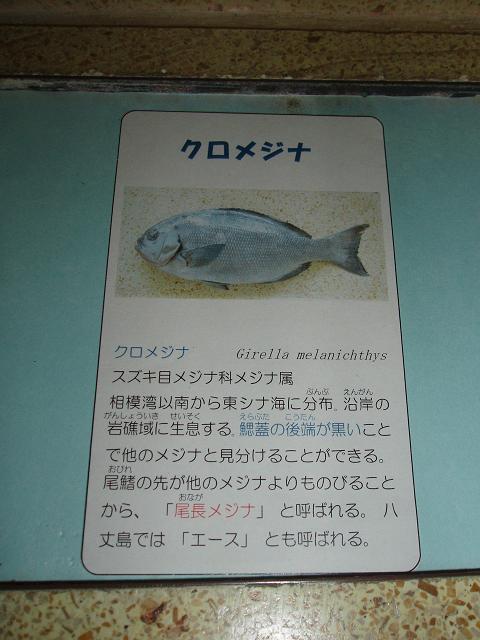 クロメジナ
クロメジナ Girella melanichthys
スズキ目メジナ科メジナ属
ぶんぷ えんがん
相模湾以南から東シナ海に分布。沿岸の
がんしょういき せいそく えらぶた こうたん
岩礁域に生息する。鰓蓋の後端が黒いこと
で他のメジナと見分けることができる。
おびれ
尾鰭の先が他のメジナよりものびること
おなが
から、「尾長メジナ」と呼ばれる。八
丈島では「エース」とも呼ばれる。